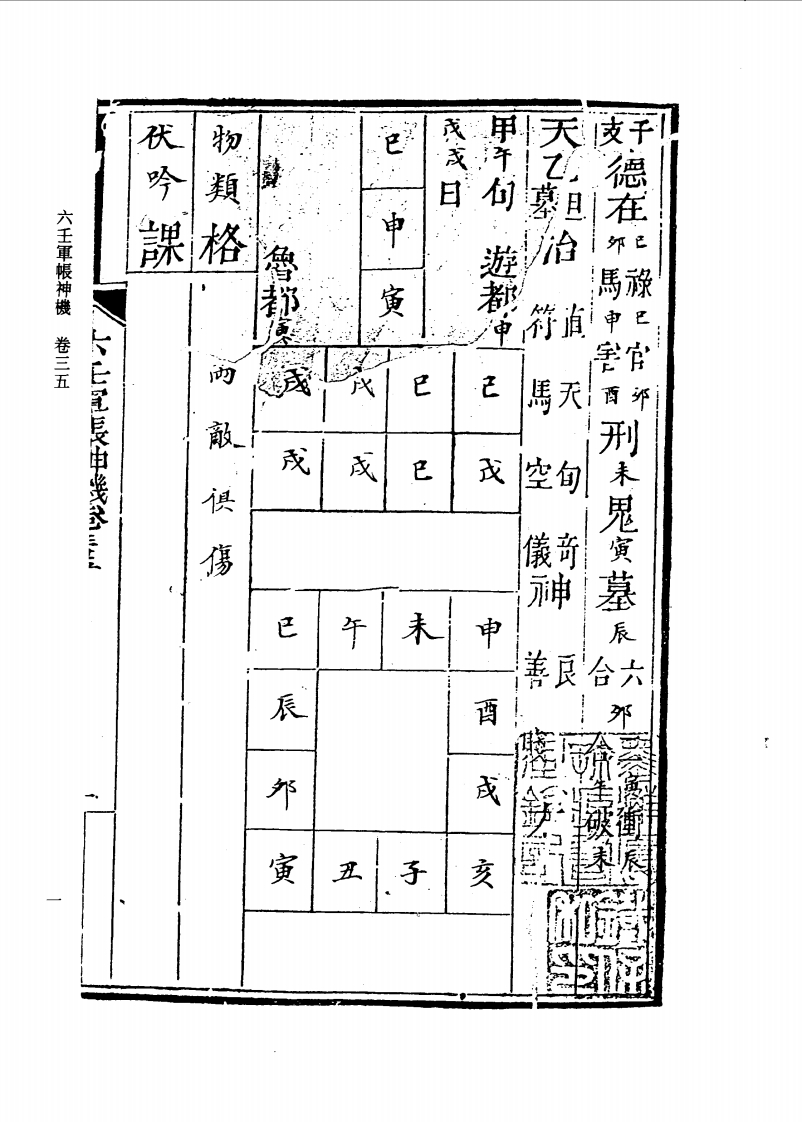 子支德在巳卯祿馬巳申官害卯酉刑未鬼寅墓辰六合卯
寅衝辰
破未
天乙旦墓治
直符
天馬
旬空
奇儀
神神
良善
甲午旬
遊都申
戊戌日
巳
申
寅
魯都寅
物類格
伏吟課
戌 戌 巳 巳
戌 戌 巳 戊
兩敵俱傷
巳 午 未 申
辰 酉
卯 戌
寅 丑 子 亥
六壬軍帳神機卷三五
六壬軍帳神機 卷三五
一
一